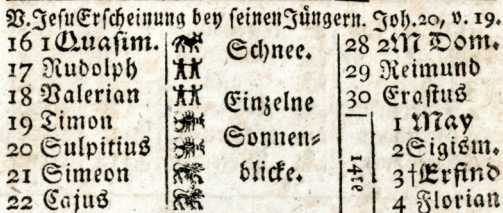 V. Jesu Erscheinung bey seinen Jüngern. Joh. 20, v. 19.
16 1 Quasim. Schnee. 28 2 M Dom.
17 Rudolph 29 Reimund
18 Valerian Einzelne 30 Erastus
19 Timon Sonnen= 1 May
20 Sulpitius blicke. 2 Sigism.
21 Simeon 14te 3 † Erfind
22 Cajus 4 Florian